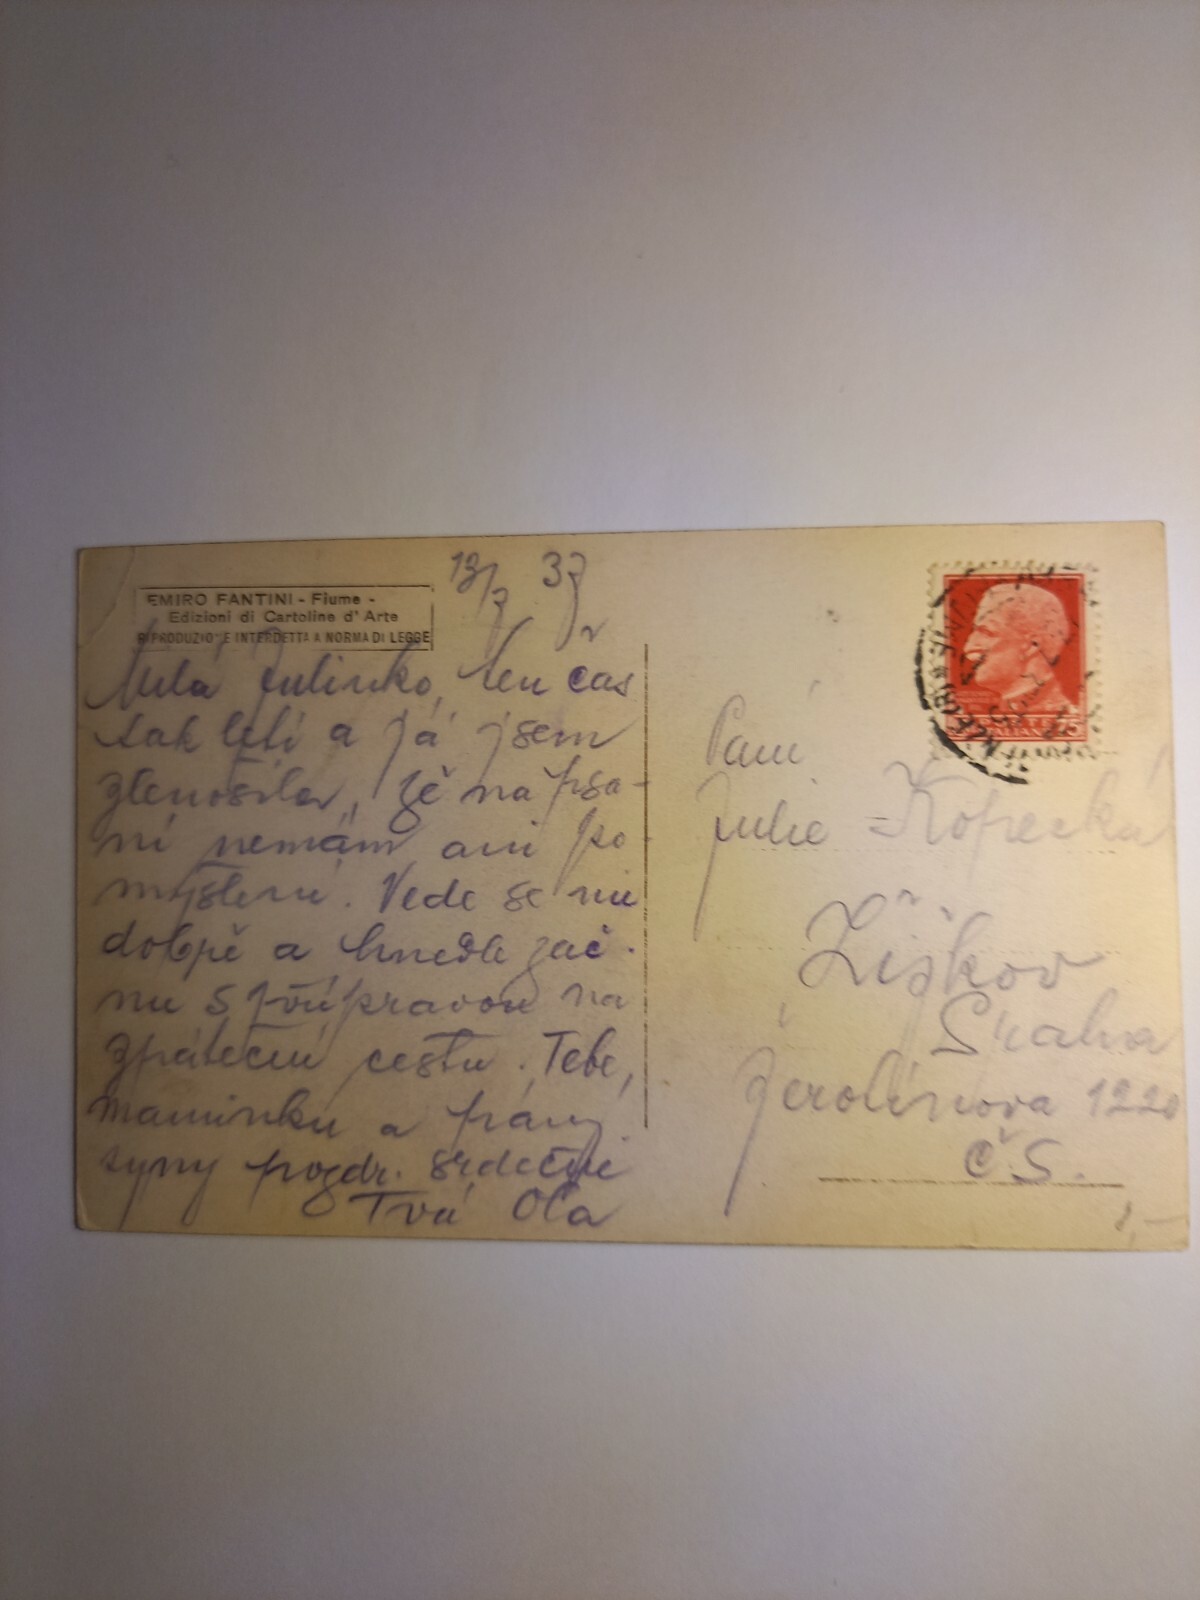 EMIRO FANTINI - Fiume -
Edizioni di Cartoline d'Arte
RIPRODUZIO E INTERDETTA A NORMA DI LEGGE
13/7 37
Milá Julinko, ten čas
tak letí a já jsem
zlenošila, že na psa-
ní nemám ani po-
myšlení. Vede se mi
dobře a hnedle zač-
nu s přípravou na
zpáteční cestu. Tebe,
maminku a pány
syny pozdr. srdečně
Tvá Ola
Paní
Julie Kopecká
Žižkov
Praha
Jerolínova 1220
Č.S.
1,-